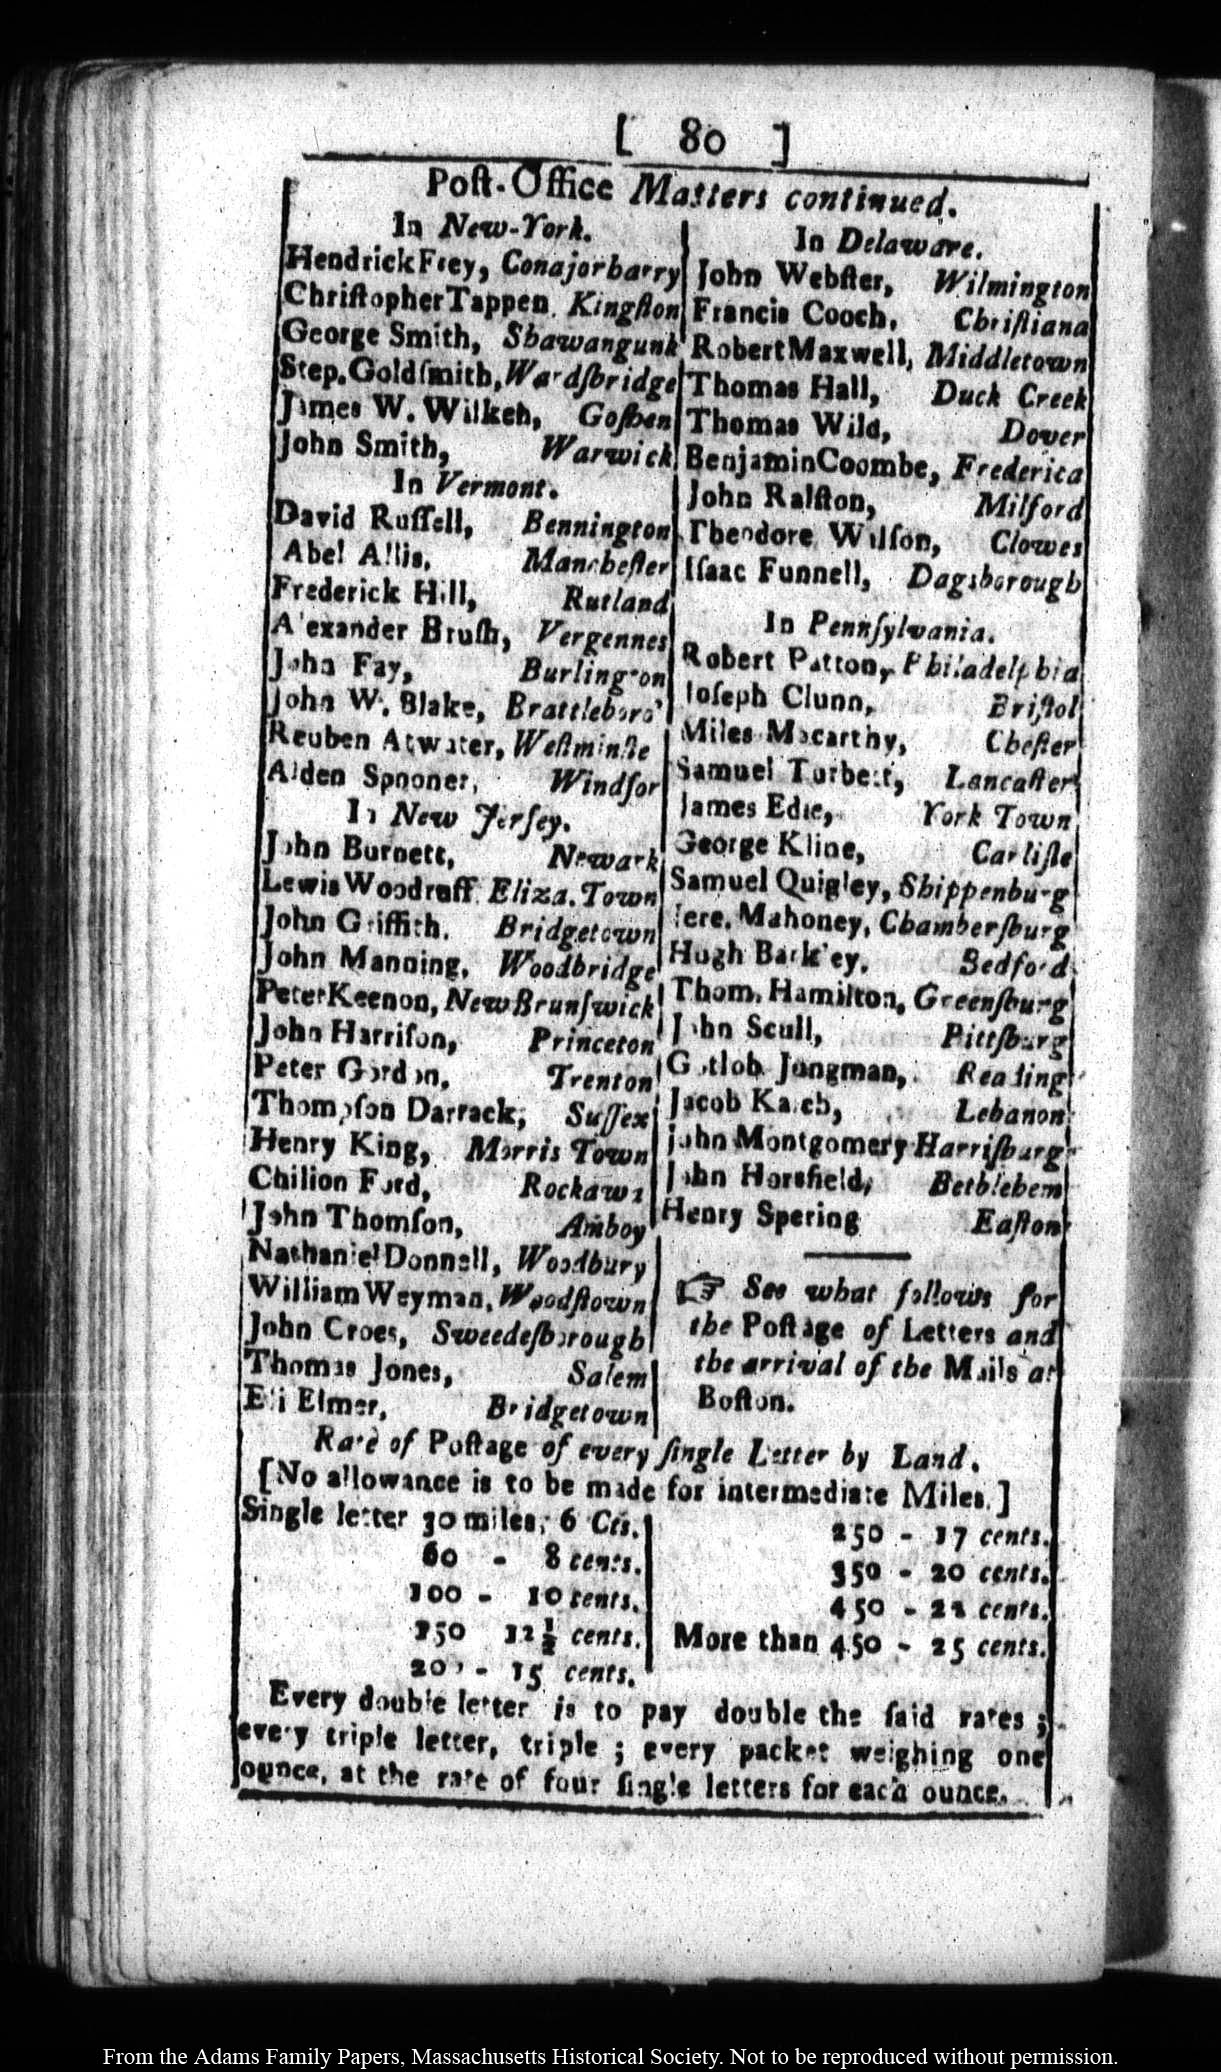 [ 80 ]
Poſt-Office Matters continued.
In New-York.
Hendrick Frey, Conajorharry
Chriſtopher Tappen, Kingſton
George Smith, Shawangunk
Step. Goldſmith, Wardſbridge
James W. Wilken, Goſhen
John Smith, Warwick
In Vermont.
David Ruſſell, Bennington
Abel Allis, Mancheſter
Frederick Hill, Rutland
Alexander Bruſh, Vergennes
John Fay, Burlington
John W. Blake, Brattleboro'
Reuben Atwater, Weſtminſte
Alden Spooner, Windſor
In New Jerſey.
John Burnett, Newark
Lewis Woodruff, Eliza. Town
John Griffith, Bridgetown
John Manning, Woodbridge
Peter Keenon, New Brunſwick
John Harriſon, Princeton
Peter Gordon, Trenton
Thompſon Darrack, Suſſex
Henry King, Morris Town
Chilion Ford, Rockawa
John Thomſon, Amboy
Nathaniel Donnell, Woodbury
William Weyman, Woodſtown
John Croes, Sweedeſborough
Thomas Jones, Salem
Eli Elmer, Bridgetown
In Delaware.
John Webſter, Wilmington
Francis Cooch, Chriſtiana
Robert Maxwell, Middletown
Thomas Hall, Duck Creek
Thomas Wild, Dover
Benjamin Coombe, Frederica
John Ralſton, Milford
Theodore Wilſon, Clowes
Iſaac Funnell, Dagsborough
In Pennſylvania.
Robert Patton, Philadelphia
Joſeph Clunn, Briſtol
Miles Macarthy, Cheſter
Samuel Turbett, Lancaſter
James Edie, York Town
George Kline, Carliſle
Samuel Quigley, Shippenburg
Jere. Mahoney, Chamberſburg
Hugh Barkley, Bedford
Thom. Hamilton, Greenſburg
John Scull, Pittſburg
Gotlob Jungman, Reading
Jacob Lebanon
John Montgomery Harriſburg
John Horsfield, Bethlehem
Henry Spering Eaſton
☞ See what follows for
the Poſtage of Letters and
the arrival of the Mails at
Boſton.
Rate of Poſtage of every ſingle Letter by Land.
[No allowance is to be made for intermediate Miles.]
Single letter 30 miles, 6 Cts.
60 - 8 cents.
100 - 10 cents.
150 12½ cents.
200 - 15 cents.
250 - 17 cents.
350 - 20 cents.
450 - 22 cents.
More than 450 - 25 cents.
Every double letter is to pay double the ſaid rates;
every triple letter, triple; every packet weighing one
ounce, at the rate of four ſingle letters for each ounce.
From the Adams Family Papers, Massachusetts Historical Society. Not to be reproduced without permission.